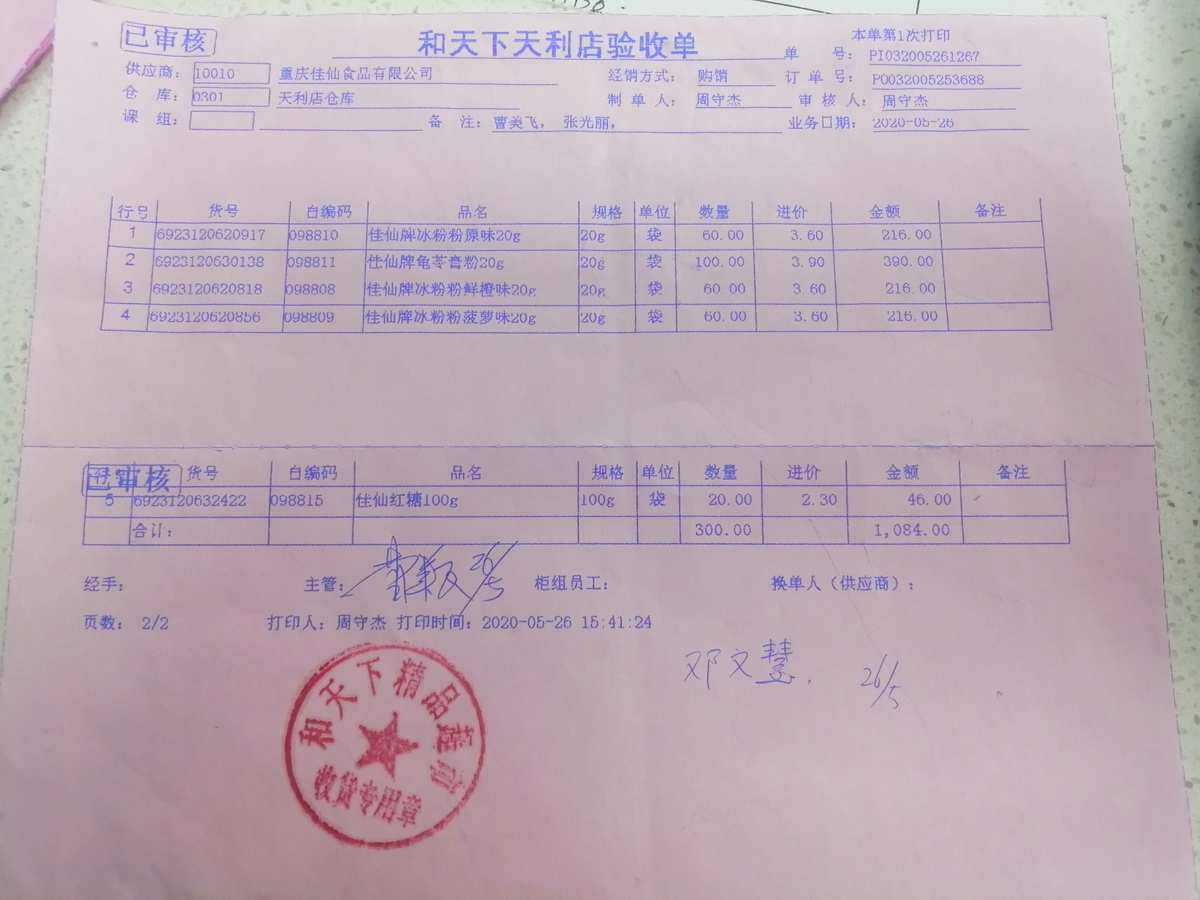 已审核 和天下天利店验收单 本单第1次打印
单 号：PI032005261267
供应商：10010 重庆佳仙食品有限公司 经销方式：购销 订单号：PO032005253688
仓 库：0301 天利店仓库 制单人：周守杰 审核人：周守杰
课 组： 备 注：曹美飞，张光丽， 业务日期：2020-05-26
行号 货号 自编码 品名 规格 单位 数量 进价 金额 备注
1 6923120620917 098810 佳仙牌冰粉粉原味20g 20g 袋 60.00 3.60 216.00
2 6923120630138 098811 佳仙牌龟苓膏粉20g 20g 袋 100.00 3.90 390.00
3 6923120620818 098808 佳仙牌冰粉粉鲜橙味20g 20g 袋 60.00 3.60 216.00
4 6923120620856 098809 佳仙牌冰粉粉菠萝味20g 20g 袋 60.00 3.60 216.00
已审核
行号 货号 自编码 品名 规格 单位 数量 进价 金额 备注
5 6923120632422 098815 佳仙红糖100g 100g 袋 20.00 2.30 46.00
合计： 300.00 1,084.00
经手： 主管： 26/5 柜组员工： 换单人（供应商）：
页数： 2/2 打印人：周守杰 打印时间：2020-05-26 15:41:24
邓文慧. 26/5
和天下精品超市
收货专用章